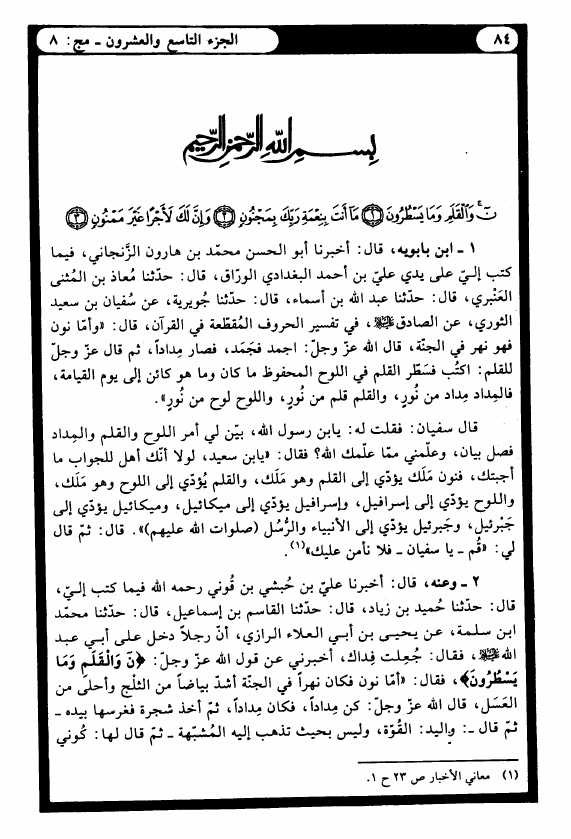 ٨٤
الجزء التاسع والعشرون ـ مج: ٨
بسم الله الرحمن الرحيم
نٓ ۚ وَٱلْقَلَمِ وَمَا يَسْطُرُونَ ﴿١﴾ مَآ أَنتَ بِنِعْمَةِ رَبِّكَ بِمَجْنُونٍ ﴿٢﴾ وَإِنَّ لَكَ لَأَجْرًا غَيْرَ مَمْنُونٍ ﴿٣﴾
١ ـ ابن بابويه، قال: أخبرنا أبو الحسن محمّد بن هارون الزّنجاني، فيما
كتب إليّ على يدي عليّ بن أحمد البغدادي الورّاق، قال: حدّثنا مُعاذ بن المُثنى
العَنْبري، قال: حدّثنا عبد الله بن أسماء، قال: حدّثنا جُويرية، عن سُفيان بن سعيد
الثوري، عن الصادق عليه السلام، في تفسير الحروف المُقطّعة في القرآن، قال: «وأمّا نون
فهو نهر في الجنّة، قال الله عزّ وجلّ: اجمد فجَمَد، فصار مِداداً، ثم قال عز وجلّ
للقلم: اكتُب فسَطّر القلم في اللوح المحفوظ ما كان وما هو كائن إلى يوم القيامة،
فالمِداد مِداد من نُورٍ، والقلم قلم من نُورٍ، واللوح لوح من نُورٍ».
قال سفيان: فقلت له: يابن رسول الله، بيّن لي أمر اللوح والقلم والمِداد
فصل بيان، وعلّمني ممّا علّمك الله؟ فقال: «يابن سعيد، لولا أنّك أهل للجواب ما
أجبتك، فنون مَلَك يؤدّي إلى القلم وهو مَلَك، والقلم يُؤدّي إلى اللوح وهو مَلَك،
واللوح يؤدّي إلى إسرافيل، وإسرافيل يؤدّي إلى ميكائيل، وميكائيل يؤدّي إلى
جَبْرئيل، وجَبرئيل يؤدّي إلى الأنبياء والرُّسُل (صلوات الله عليهم)». قال: ثمّ قال
لي: «قُم ـ يا سفيان ـ فلا نأمن عليك»(١).
٢ ـ وعنه، قال: أخبرنا عليّ بن حُبشي بن قُوني رحمه الله فيما كتب إليّ،
قال: حدّثنا حُميد بن زياد، قال: حدّثنا القاسم بن إسماعيل، قال: حدّثنا محمّد
ابن سلمة، عن يحيى بن أبي العلاء الرازي، أنّ رجلاً دخل على أبي عبد
الله عليه السلام، فقال: جُعِلت فِداك، أخبرني عن قول الله عزّ وجلّ: ﴿نّ وَالْقَلَمِ وَمَا
يَسْطُرُونَ﴾، فقال: «أمّا نون فكان نهراً في الجنّة أشدّ بياضاً من الثلْج وأحلى من
العَسَل، قال الله عزّ وجلّ: كن مِداداً، فكان مِداداً، ثمّ أخذ شجرة فغرسها بيده ـ
ثمّ قال ـ: واليد: القوّة، وليس بحيث تذهب إليه المُشبّهة ـ ثمّ قال لها: كُوني
(١) معاني الأخبار ص ٢٣ ح ١.